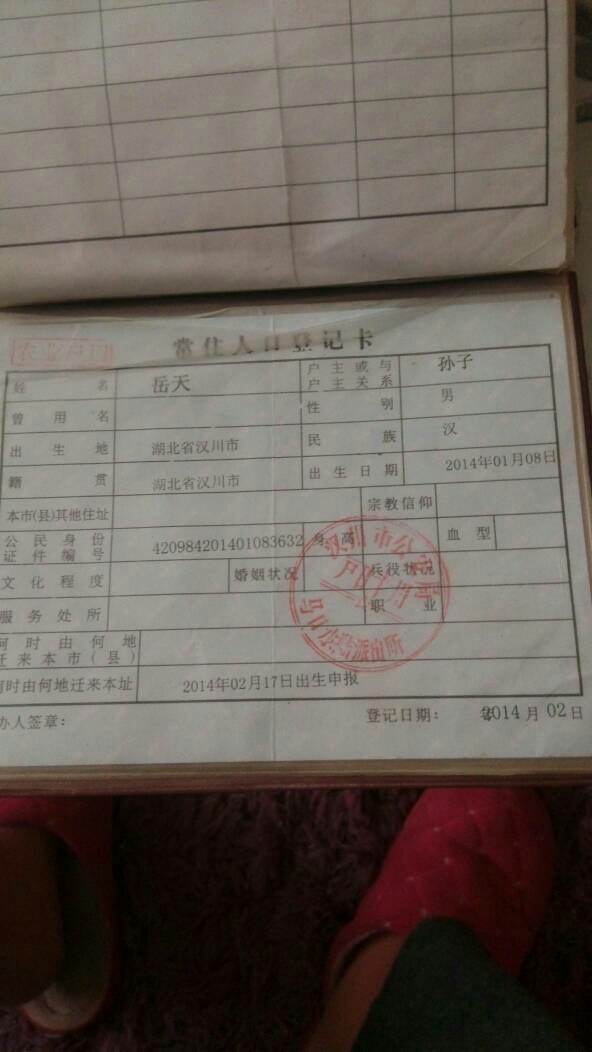 农业户口
常住人口登记卡
姓名 岳天 户主或与户主关系 孙子
曾用名 性别 男
出生地 湖北省汉川市 民族 汉
籍贯 湖北省汉川市 出生日期 2014年01月08日
本市(县)其他住址 宗教信仰
公民身份证件编号 420984201401083632 身高 血型
文化程度 婚姻状况 兵役状况
服务处所 职业
何时由何地迁来本市(县)
何时由何地迁来本址 2014年02月17日出生申报
办人签章: 登记日期: 年2014月02日
汉川市公安局
户口专用
派出所